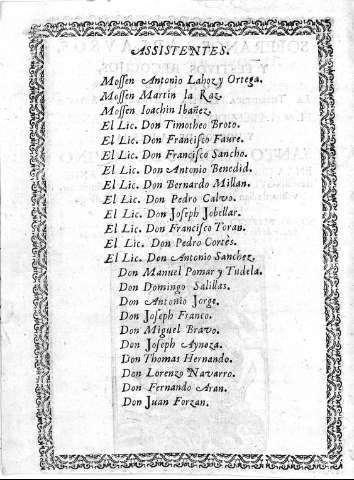 ASSISTENTES.
Mossen Antonio Lahoz y Ortega.
Mossen Martin la Raz.
Mossen Ioachin Ibañez.
El Lic. Don Timotheo Broto.
El Lic. Don Francisco Faure.
El Lic. Don Francisco Sancho.
El Lic. Don Antonio Benedid.
El Lic. Don Bernardo Millan.
El Lic. Don Pedro Calvo.
El Lic. Don Joseph Jobellar.
El Lic. Don Francisco Toran.
El Lic. Don Pedro Cortès.
El Lic. Don Antonio Sanchez.
Don Manuel Pomar y Tudela.
Don Domingo Salillas.
Don Antonio Jorge.
Don Joseph Franco.
Don Miguel Bravo.
Don Joseph Aynoza.
Don Thomas Hernando.
Don Lorenzo Navarro.
Don Fernando Aran.
Don Juan Forzan.